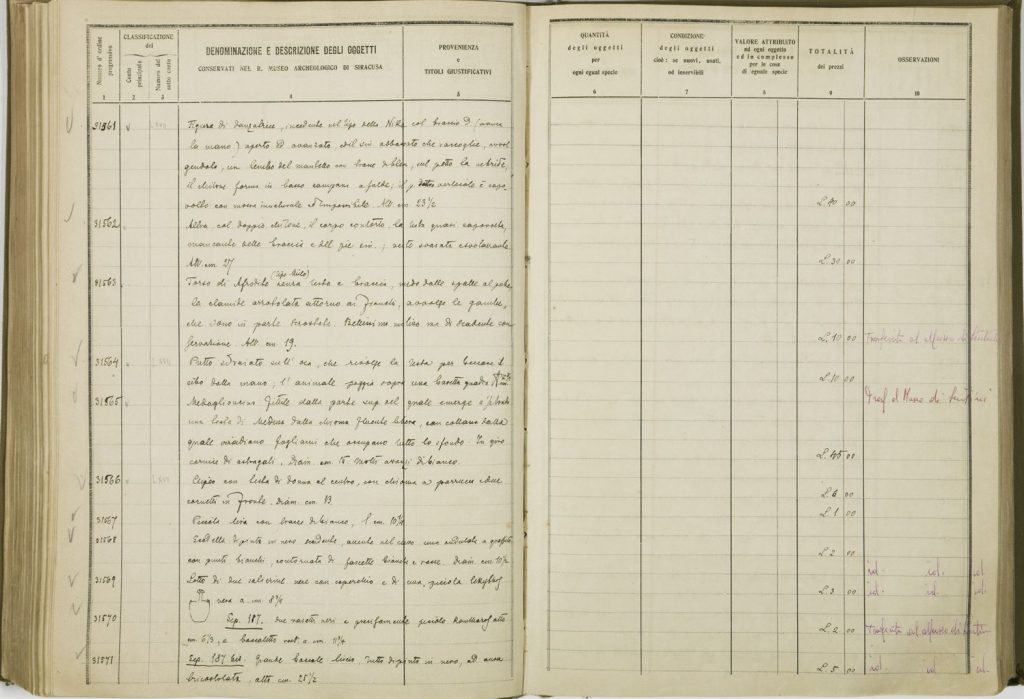 Numero d'ordine progressivo
CLASSIFICAZIONE dei
Conto principale
Numero del sotto conto
DENOMINAZIONE E DESCRIZIONE DEGLI OGGETTI
CONSERVATI NEL R. MUSEO ARCHEOLOGICO DI SIRACUSA
PROVENIENZA
e
TITOLI GIUSTIFICATIVI
QUANTITÀ
degli oggetti
per
ogni egual specie
CONDIZIONE
degli oggetti
cioè: se nuovi, usati,
od inservibili
VALORE ATTRIBUITO
ad ogni oggetto
ed in complesso
per le cose
di eguale specie
TOTALITÀ
dei prezzi
OSSERVAZIONI
1 2 3 4 5 6 7 8 9 10
31561 Figura di danzatrice, incedente nel tipo della Nike col braccio D. (manca
la mano) aperto ed avanzato, ed il sin. che raccoglie,
un lembo del mantello con bande di bleu, sul petto la nebride,
il chitone forma in basso campana a falde; il
con mossa innaturale ed impossibile. Alt. cm 23 1/2
L. 40 00
31562 Altra col doppio chitone, il corpo contorto, la testa quasi
mancante delle braccia e del pie sin.; veste svasata e svolazzante.
Alt. cm. 27
L. 30 00
31563 Torso di Afrodite (tipo Milo) senza testa e braccia, nudo dalle spalle al pube
la clamide arrotolata attorno ai fianchi, avvolge le gambe,
che sono in parte Bellissimo motivo ma di scadente con
servazione. Alt. cm. 19.
L. 10 00 Trasferito al Museo di Lentini
31564 Putto sdraiato sull' oca, che rivolge la testa per beccare il
cibo dalla mano; l' animale poggia sopra una basetta quadra
L. 10 00
31565 fittile dalla parte sup. del quale emerge
una testa di Medusa dalla chioma fluente libera, con collana dalla
quale irradiano fogliami che occupano tutto lo sfondo. In giro
cornice di astragali. Diam. cm. 15. Molti avanzi di bianco.
L. 45 00
Trasf. al Museo di Lentini
31566 con testa di donna al centro, con chioma a parrucca e due
cornetti in fronte. diam. cm. 13
L. 6 00
31567 Piccola con tracce di bianco,
L. 1 00
31568 Scodella dipinta in nero scadente, avente nel cavo una ondulata a graffito
con punti bianchi, contornata di fascette bianche e rosse. Diam. cm. 10 1/2
L. 2 00 id. id. id.
31569 Lotto di due saliere nere con coperchio e di una piccola lekythos
nera a. cm. 8
L. 3 00 id. id. id.
31570 Sep. 187. due vasetti neri e precisamente piccolo kantharos alto
cm. 6 e boccaletto
L. 2 00 Trasferito al Museo di Lentini
31571 Sep. 187 bis. Grande boccale liscio, tutto dipinto in nero, ad ansa
alto cm. 25 1/2
L. 5 00 id. id. id.